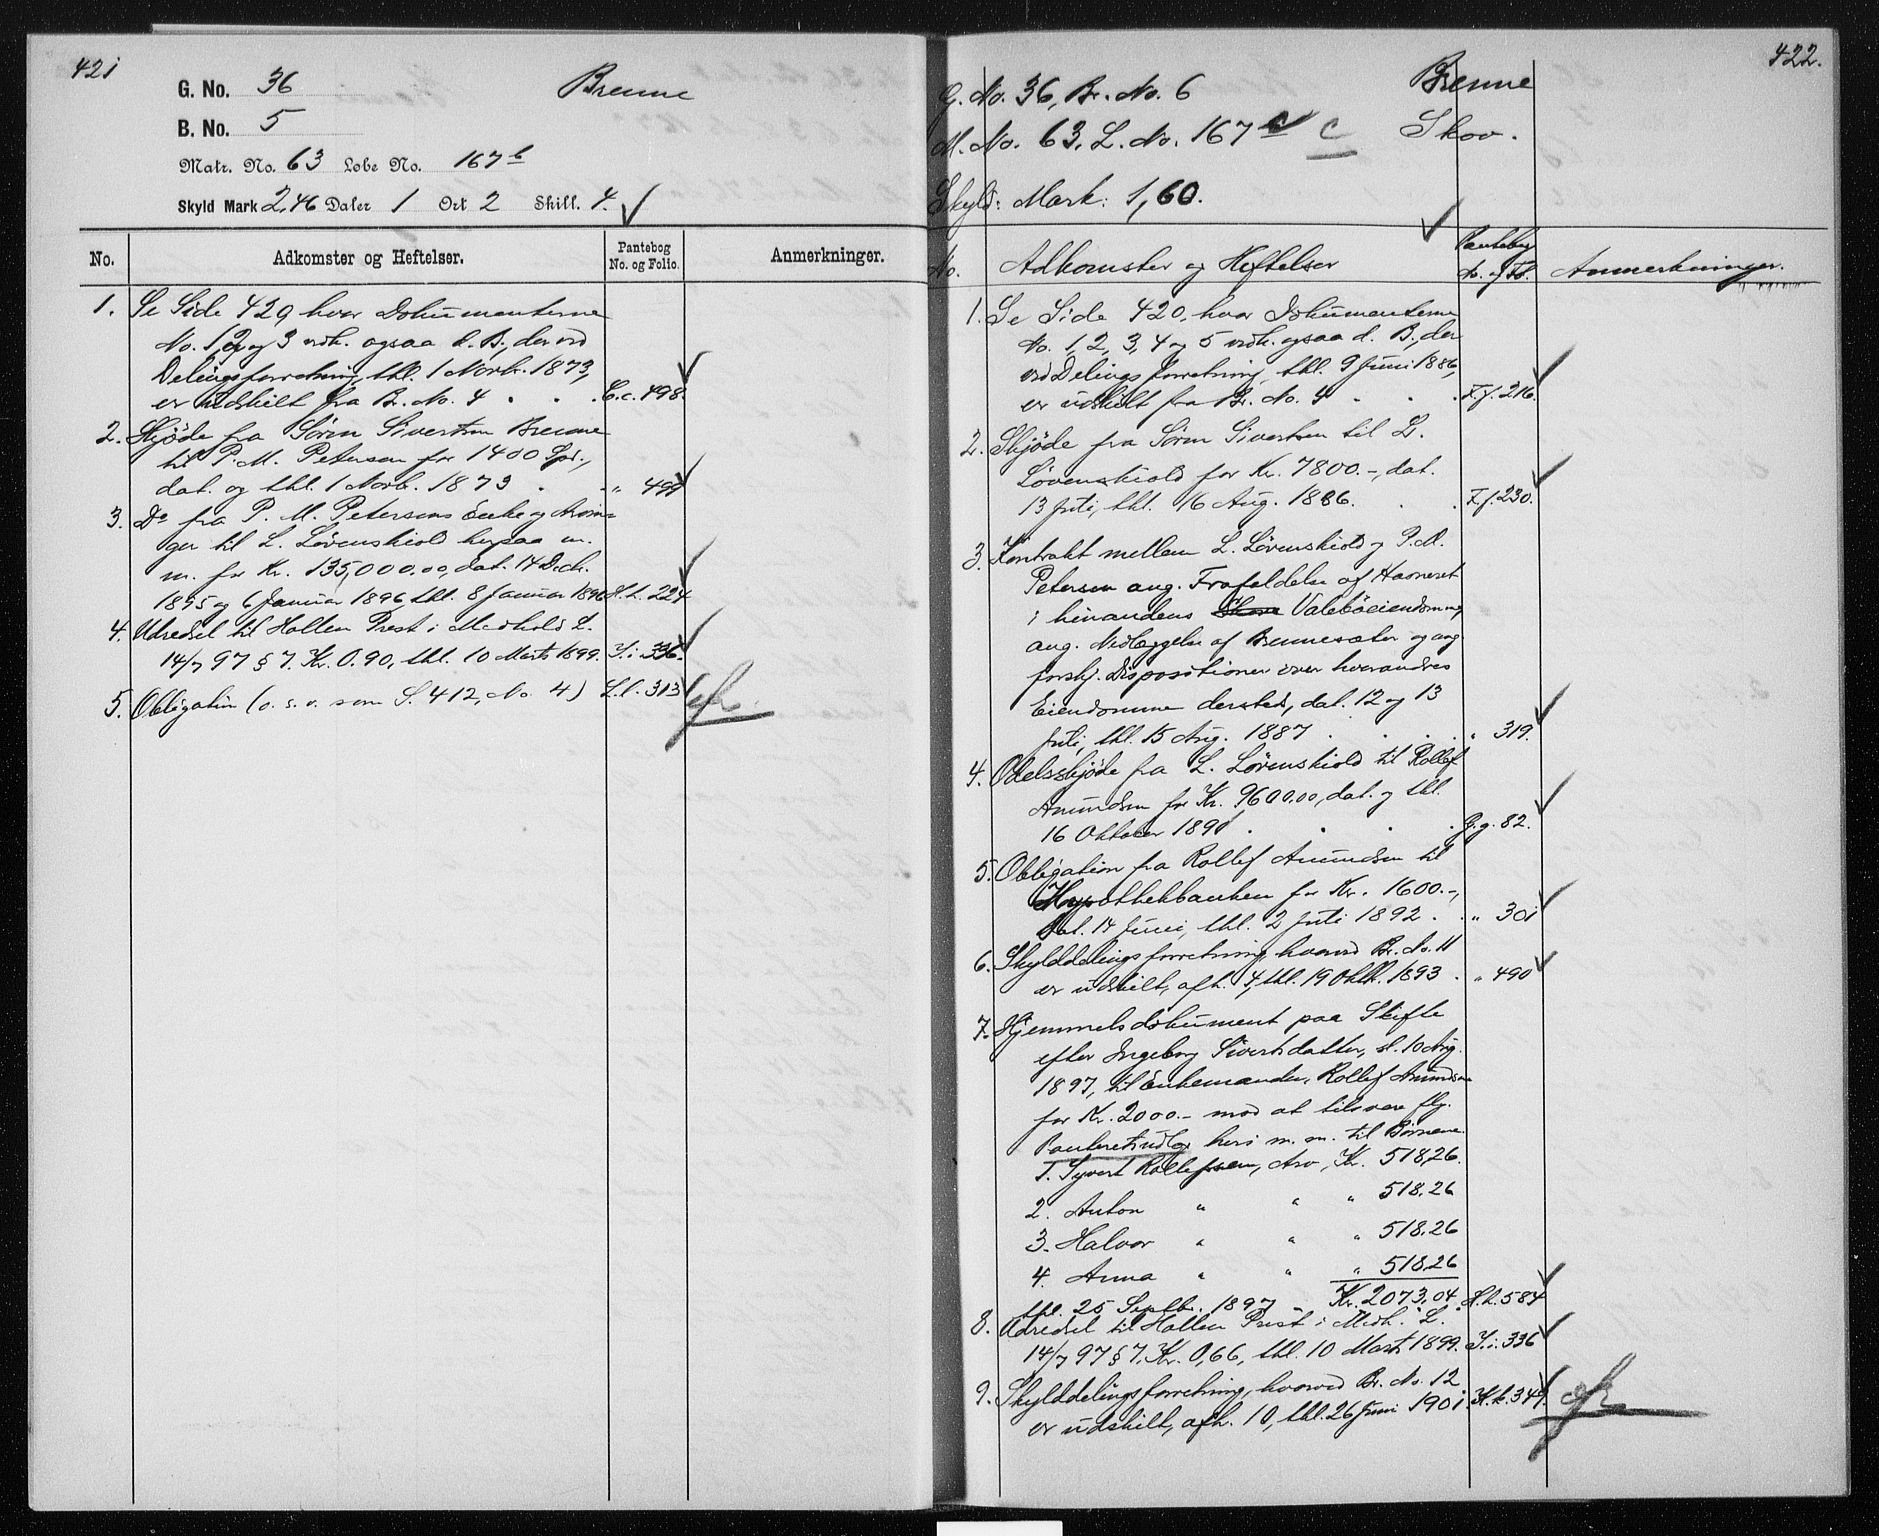 421
G. No. 36 Brenne
B. No. 5
Matr. No. 63 Lobe No. 167 b
Skyld Mark 2,46 Daler 1 Ort 2 Skill. 4.
No. Adkomster og Heftelser. Pantebog No. og Folio. Anmerkninger.
1. Se Side 420, hvor Dokumenterne
No. 1, 2 og 3 vedk. ogsaa d. B., der ved
Delingsforretning, thl. 1 Novbr. 1873,
er udskilt fra Br. No. 4 . . C.c. 498.
2. Skjöde fra Sören Sivertsen Brenne
til P. M. Petersen for 1400 Spd.,
dat. og thl. 1 Novb. 1873 . " 499
3. Do fra P. M. Petersens Enke og Arvin-
ger til L. Lövenskiold herpaa m.
m. for Kr. 135,000.00, dat. 14 Decb.
1895 og 6 Januar 1896, thl. 8 Januar 1896 H.h. 224
4. Udredsel til Hollen Prest i Medhold L.
14/7 97 § 7. Kr. 0.90, thl. 10 Marts 1899. I.i. 336.
5. Obligation (o. s. v. som S. 412, No. 4) L.l. 313
422.
G. No. 36, Br. No. 6 Brenne
M. No. 63, L. No. 167 c c Skov.
Skyld: Mark: 1,60.
No. Adkomster og Heftelser Pantebog No. og Fol. Anmerkninger.
1. Se Side 420, hvor Dokumenterne
No. 1, 2, 3, 4 og 5 vedk. ogsaa d. B., der
ved Delingsforretning, thl. 9 Juni 1886,
er udskilt fra Br. No. 4 . . . F.f. 216.
2. Skjöde fra Sören Sivertsen til L.
Lövenskiold for Kr. 7800.-, dat.
13 Juli, thl. 16 Aug. 1886. . . F.f. 230.
3. Kontrakt mellem L. Lövenskiold og P. M.
Petersen ang. Frafaldelse af Havneret
i hinandens Valeböeiendomme,
ang. Nedlæggelse af Brennesæter og ang.
forskj. Dispositioner over hverandres
Eiendomme dersted, dat. 12 og 13
Juli, thl. 15 Aug. 1887 . . . . " 319.
4. Odelsskjöde fra L. Lövenskiold til Rollef
Amundsen for Kr. 9600.00, dat. og thl.
16 Oktober 1891 . . . . G.g. 82.
5. Obligation fra Rollef Amundsen til
Hypothekbanken for Kr. 1600.-,
dat. 14 Juni, thl. 2 Juli 1892 . . " 301
6. Skylddelingsforretning, hvorved Br. No. 11
er udskilt, afh. 4, thl. 19 Oktb. 1893 . " 490
7. Hjemmelsdokument paa Skifte
efter Ingeborg Sivertsdatter, sl. 10 Aug.
1897, til Enkemanden, Rollef Amundsen
for Kr. 2000.- mod at tilsvare flg.
Panteretsudlæg heri m. m. til Börnene.
1. Syvert Rollefsen, Arv, Kr. 518,26.
2. Anton " " " 518.26
3. Halvor " " " 518.26
4. Anna " " " 518.26
thl. 25 Septbr. 1897 . Kr. 2073,04. H.h. 584
8. Udredsel til Hollen Prest i Medh. L.
14/7 97 § 7, Kr. 0,66, thl. 10 Marts 1899. I.i. 336
9. Skylddelingsforretning, hvorved Br. No. 12
er udskilt, afh. 10, thl. 26 Juni 1901. K.k. 344.